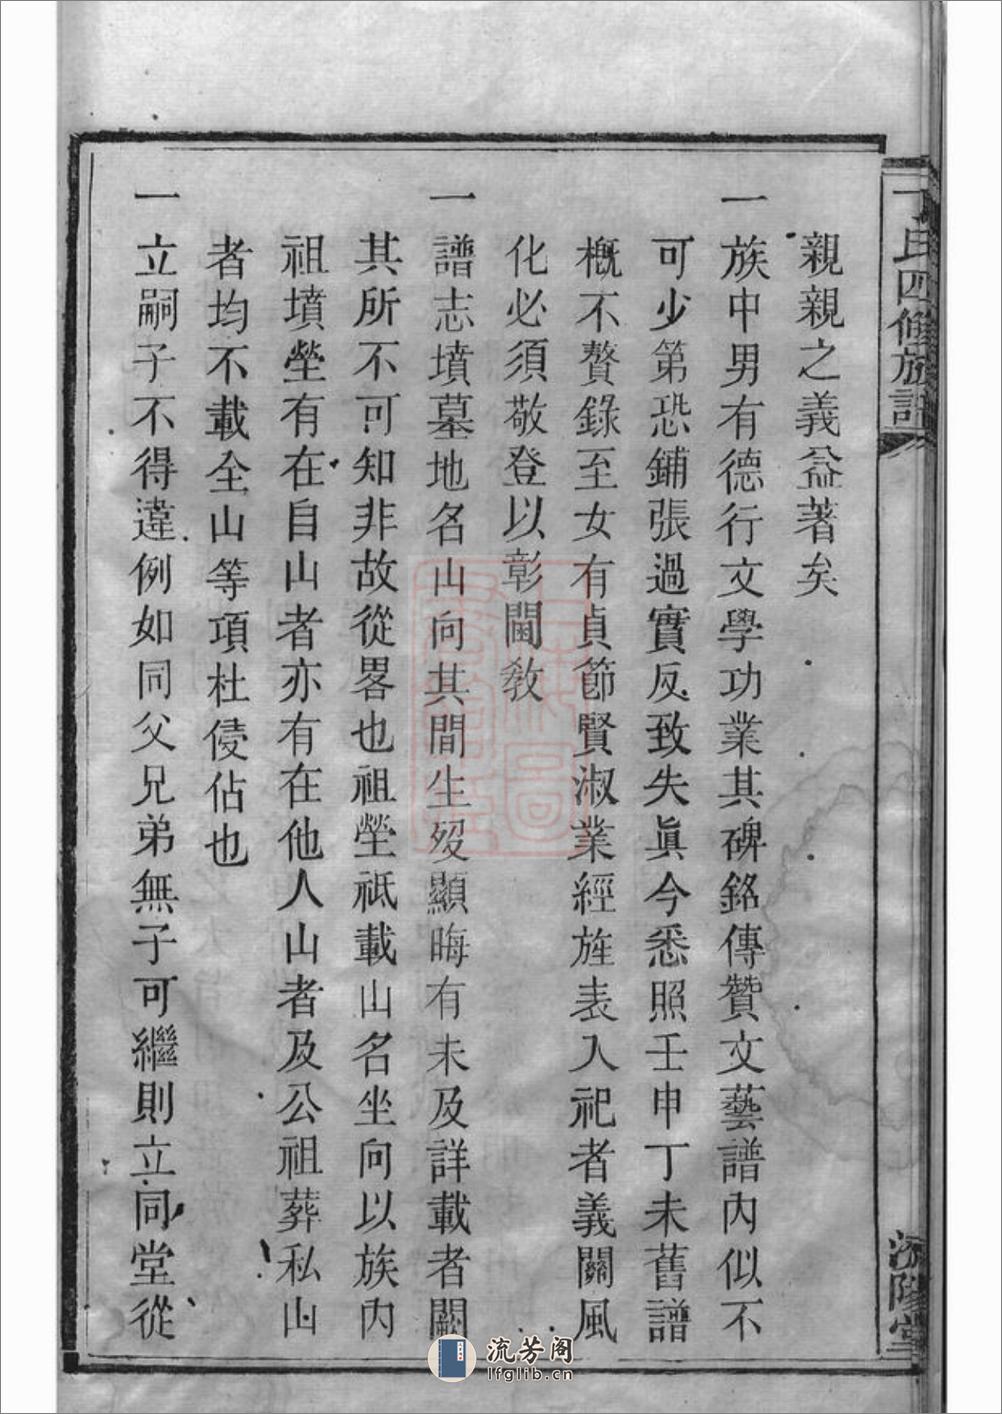 丁氏四修族譜
濟陽堂
親親之義益著矣
一族中男有德行文學功業其碑銘傳贊文藝譜內似不
可少第恐鋪張過實反致失眞今悉照壬申丁未舊譜
槪不贅錄至女有貞節賢淑業經旌表入祀者義關風
化必須敬登以彰閫敎
一譜志墳墓地名山向其間生歿顯晦有未及詳載者闕
其所不可知非故從畧也祖塋祗載山名坐向以族內
祖墳塋有在自山者亦有在他人山者及公祖葬私山
者均不載全山等項杜侵佔也
一立嗣子不得違例如同父兄弟無子可繼則立同堂從
流芳阁
lfglib.cn